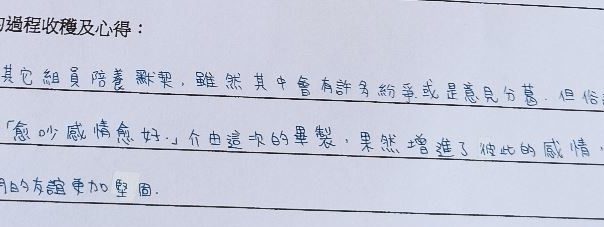 過程收穫及心得：
其它組員陪養默契，雖然其中會有許多紛爭或是意見分舊．但俗
「愈吵感情愈好．」介由這次的畢製，果然增進了彼此的感情，
的友誼更加堅固．